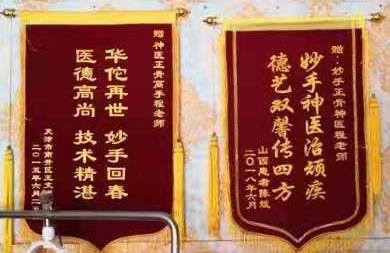 赠神医正骨高手程老师
华佗再世 妙手回春
医德高尚 技术精湛
天津市南开区王文
二〇一五年六月二
赠：妙手正骨神医程老师
妙手神医治顽疾
德艺双馨传四方
山西患者陈
二〇一八年六月